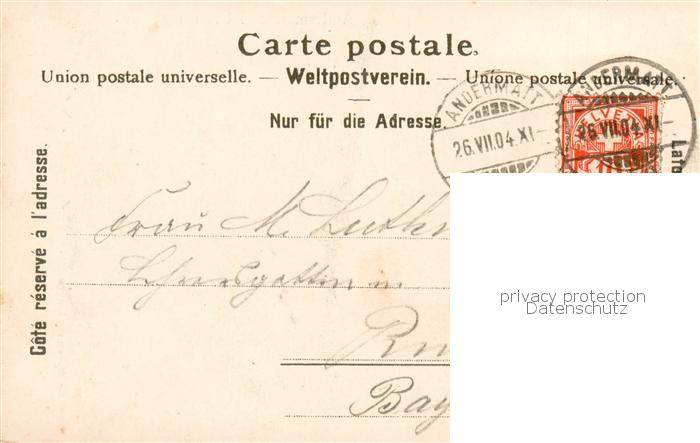 Carte postale.
Union postale universelle. — Weltpostverein. — Unione postale universale.
Nur für die Adresse.
ANDERMATT
26.VII.04.XI–
ANDERMATT
26.VII.04.XI–
HELVETIA
Côté réservé à l'adresse.
Frau M.
privacy protection
Datenschutz